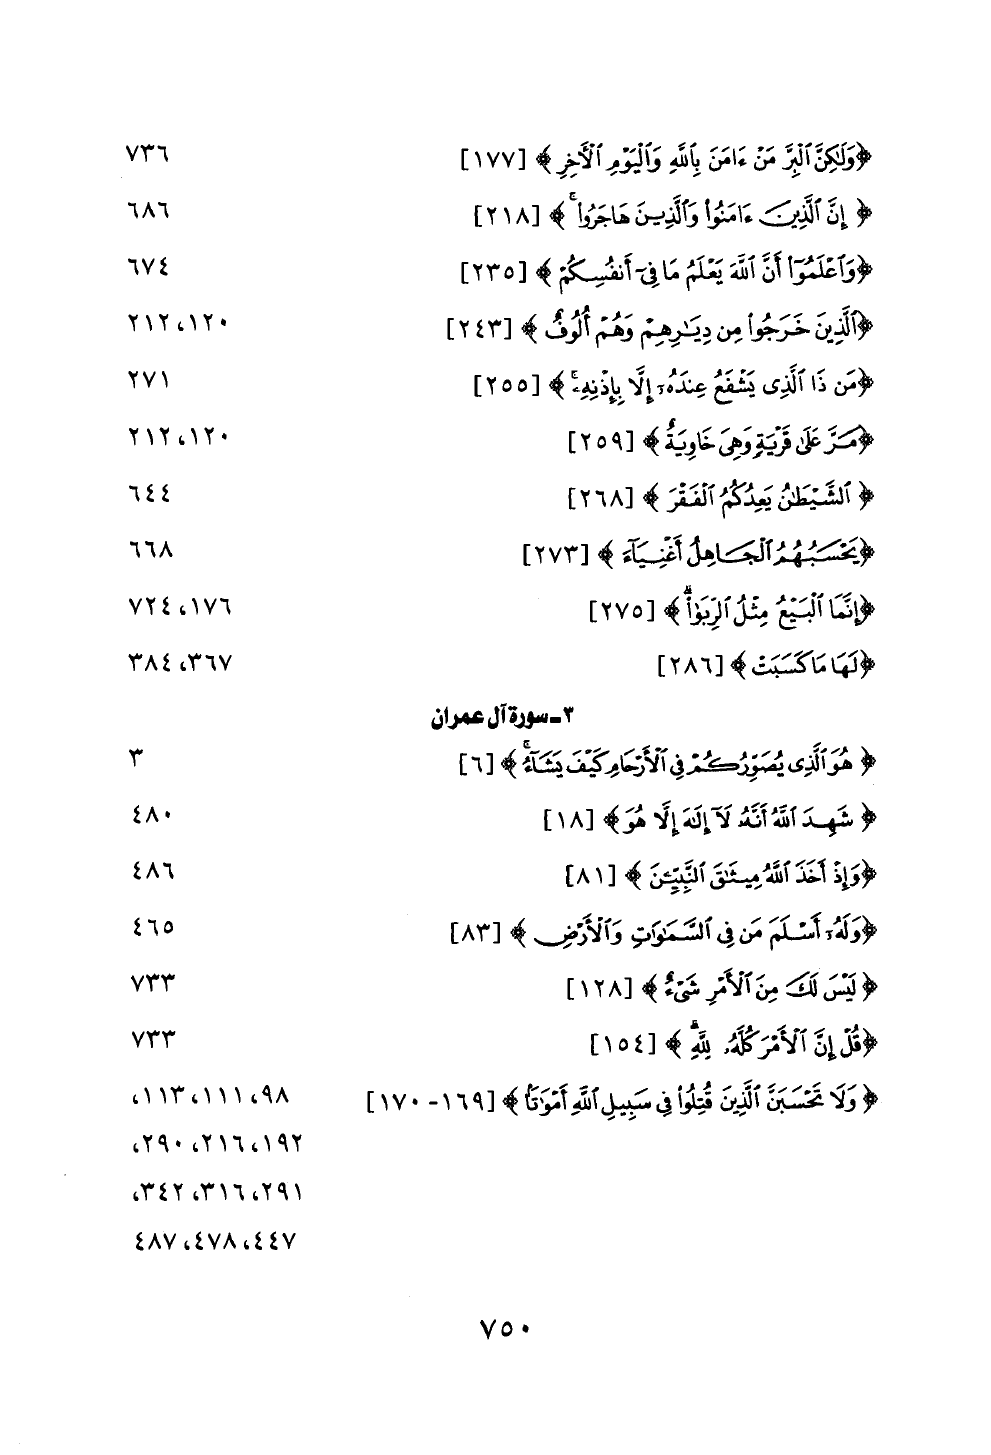 ﴿وَلَٰكِنَّ ٱلْبِرَّ مَنْ ءَامَنَ بِٱللَّهِ وَٱلْيَوْمِ ٱلْأَخِرِ﴾ [١٧٧] ٧٣٦
﴿إِنَّ ٱلَّذِينَ ءَامَنُوا۟ وَٱلَّذِينَ هَاجَرُوا۟﴾ [٢١٨] ٦٨٦
﴿وَٱعْلَمُوٓا۟ أَنَّ ٱللَّهَ يَعْلَمُ مَا فِىٓ أَنفُسِكُمْ﴾ [٢٣٥] ٦٧٤
﴿ٱلَّذِينَ خَرَجُوا۟ مِن دِيَٰرِهِمْ وَهُمْ أُلُوفٌ﴾ [٢٤٣] ١٢٠، ٢١٢
﴿مَن ذَا ٱلَّذِى يَشْفَعُ عِندَهُۥٓ إِلَّا بِإِذْنِهِۦۚ﴾ [٢٥٥] ٢٧١
﴿مَرَّ عَلَىٰ قَرْيَةٍ وَهِىَ خَاوِيَةٌ﴾ [٢٥٩] ١٢٠، ٢١٢
﴿ٱلشَّيْطَٰنُ يَعِدُكُمُ ٱلْفَقْرَ﴾ [٢٦٨] ٦٤٤
﴿يَحْسَبُهُمُ ٱلْجَاهِلُ أَغْنِيَآءَ﴾ [٢٧٣] ٦٦٨
﴿إِنَّمَا ٱلْبَيْعُ مِثْلُ ٱلرِّبَوٰا۟ۗ﴾ [٢٧٥] ١٧٦، ٧٢٤
﴿لَهَا مَا كَسَبَتْ﴾ [٢٨٦] ٣٦٧، ٣٨٤
٣ ـ سورة آل عمران
﴿هُوَ ٱلَّذِى يُصَوِّرُكُمْ فِى ٱلْأَرْحَامِ كَيْفَ يَشَآءُۚ﴾ [٦] ٣
﴿شَهِدَ ٱللَّهُ أَنَّهُۥ لَآ إِلَٰهَ إِلَّا هُوَ﴾ [١٨] ٤٨٠
﴿وَإِذْ أَخَذَ ٱللَّهُ مِيثَٰقَ ٱلنَّبِيِّـۧنَ﴾ [٨١] ٤٨٦
﴿وَلَهُۥٓ أَسْلَمَ مَن فِى ٱلسَّمَٰوَٰتِ وَٱلْأَرْضِ﴾ [٨٣] ٤٦٥
﴿لَيْسَ لَكَ مِنَ ٱلْأَمْرِ شَىْءٌ﴾ [١٢٨] ٧٣٣
﴿قُلْ إِنَّ ٱلْأَمْرَ كُلَّهُۥ لِلَّهِۗ﴾ [١٥٤] ٧٣٣
﴿وَلَا تَحْسَبَنَّ ٱلَّذِينَ قُتِلُوا۟ فِى سَبِيلِ ٱللَّهِ أَمْوَٰتًۢا﴾ [١٦٩ - ١٧٠] ٩٨، ١١١، ١١٣،
١٩٢، ٢١٦، ٢٩٠،
٢٩١، ٣١٦، ٣٤٢،
٤٤٧، ٤٧٨، ٤٨٧
٧٥٠